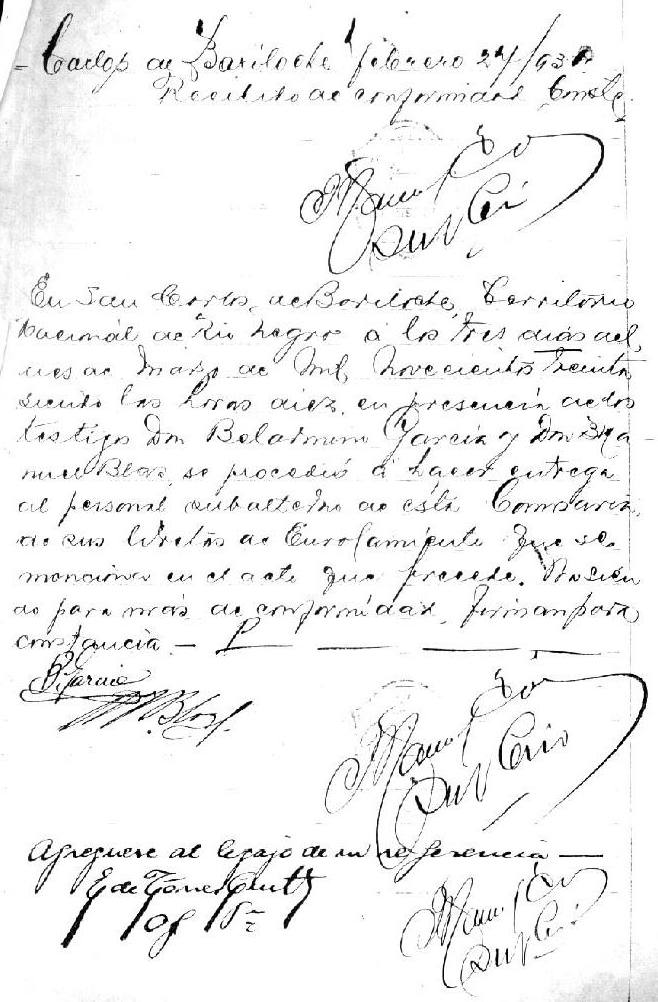 Carlos de Bariloche febrero 27/930
Recibido de conformidad Conste.
En San Carlos de Bariloche, Territorio
Nacional de Rio Negro á los tres dias del
mes de Marzo de Mil Novecientos Treinta
siendo las horas diez, en presencia de dos
testigo Don Belarmino Garcia y Don Ma
nuel Blas, se procedió á hacer entrega
al personal subalterno de ésta Comisaria,
de sus libretas de Enrolamiento que se
menciona en el acta que precede. No sien
do para más de conformidad, firman para
constancia. —
B. Garcia
M. Blas.
Agreguese al legajo de su referencia —